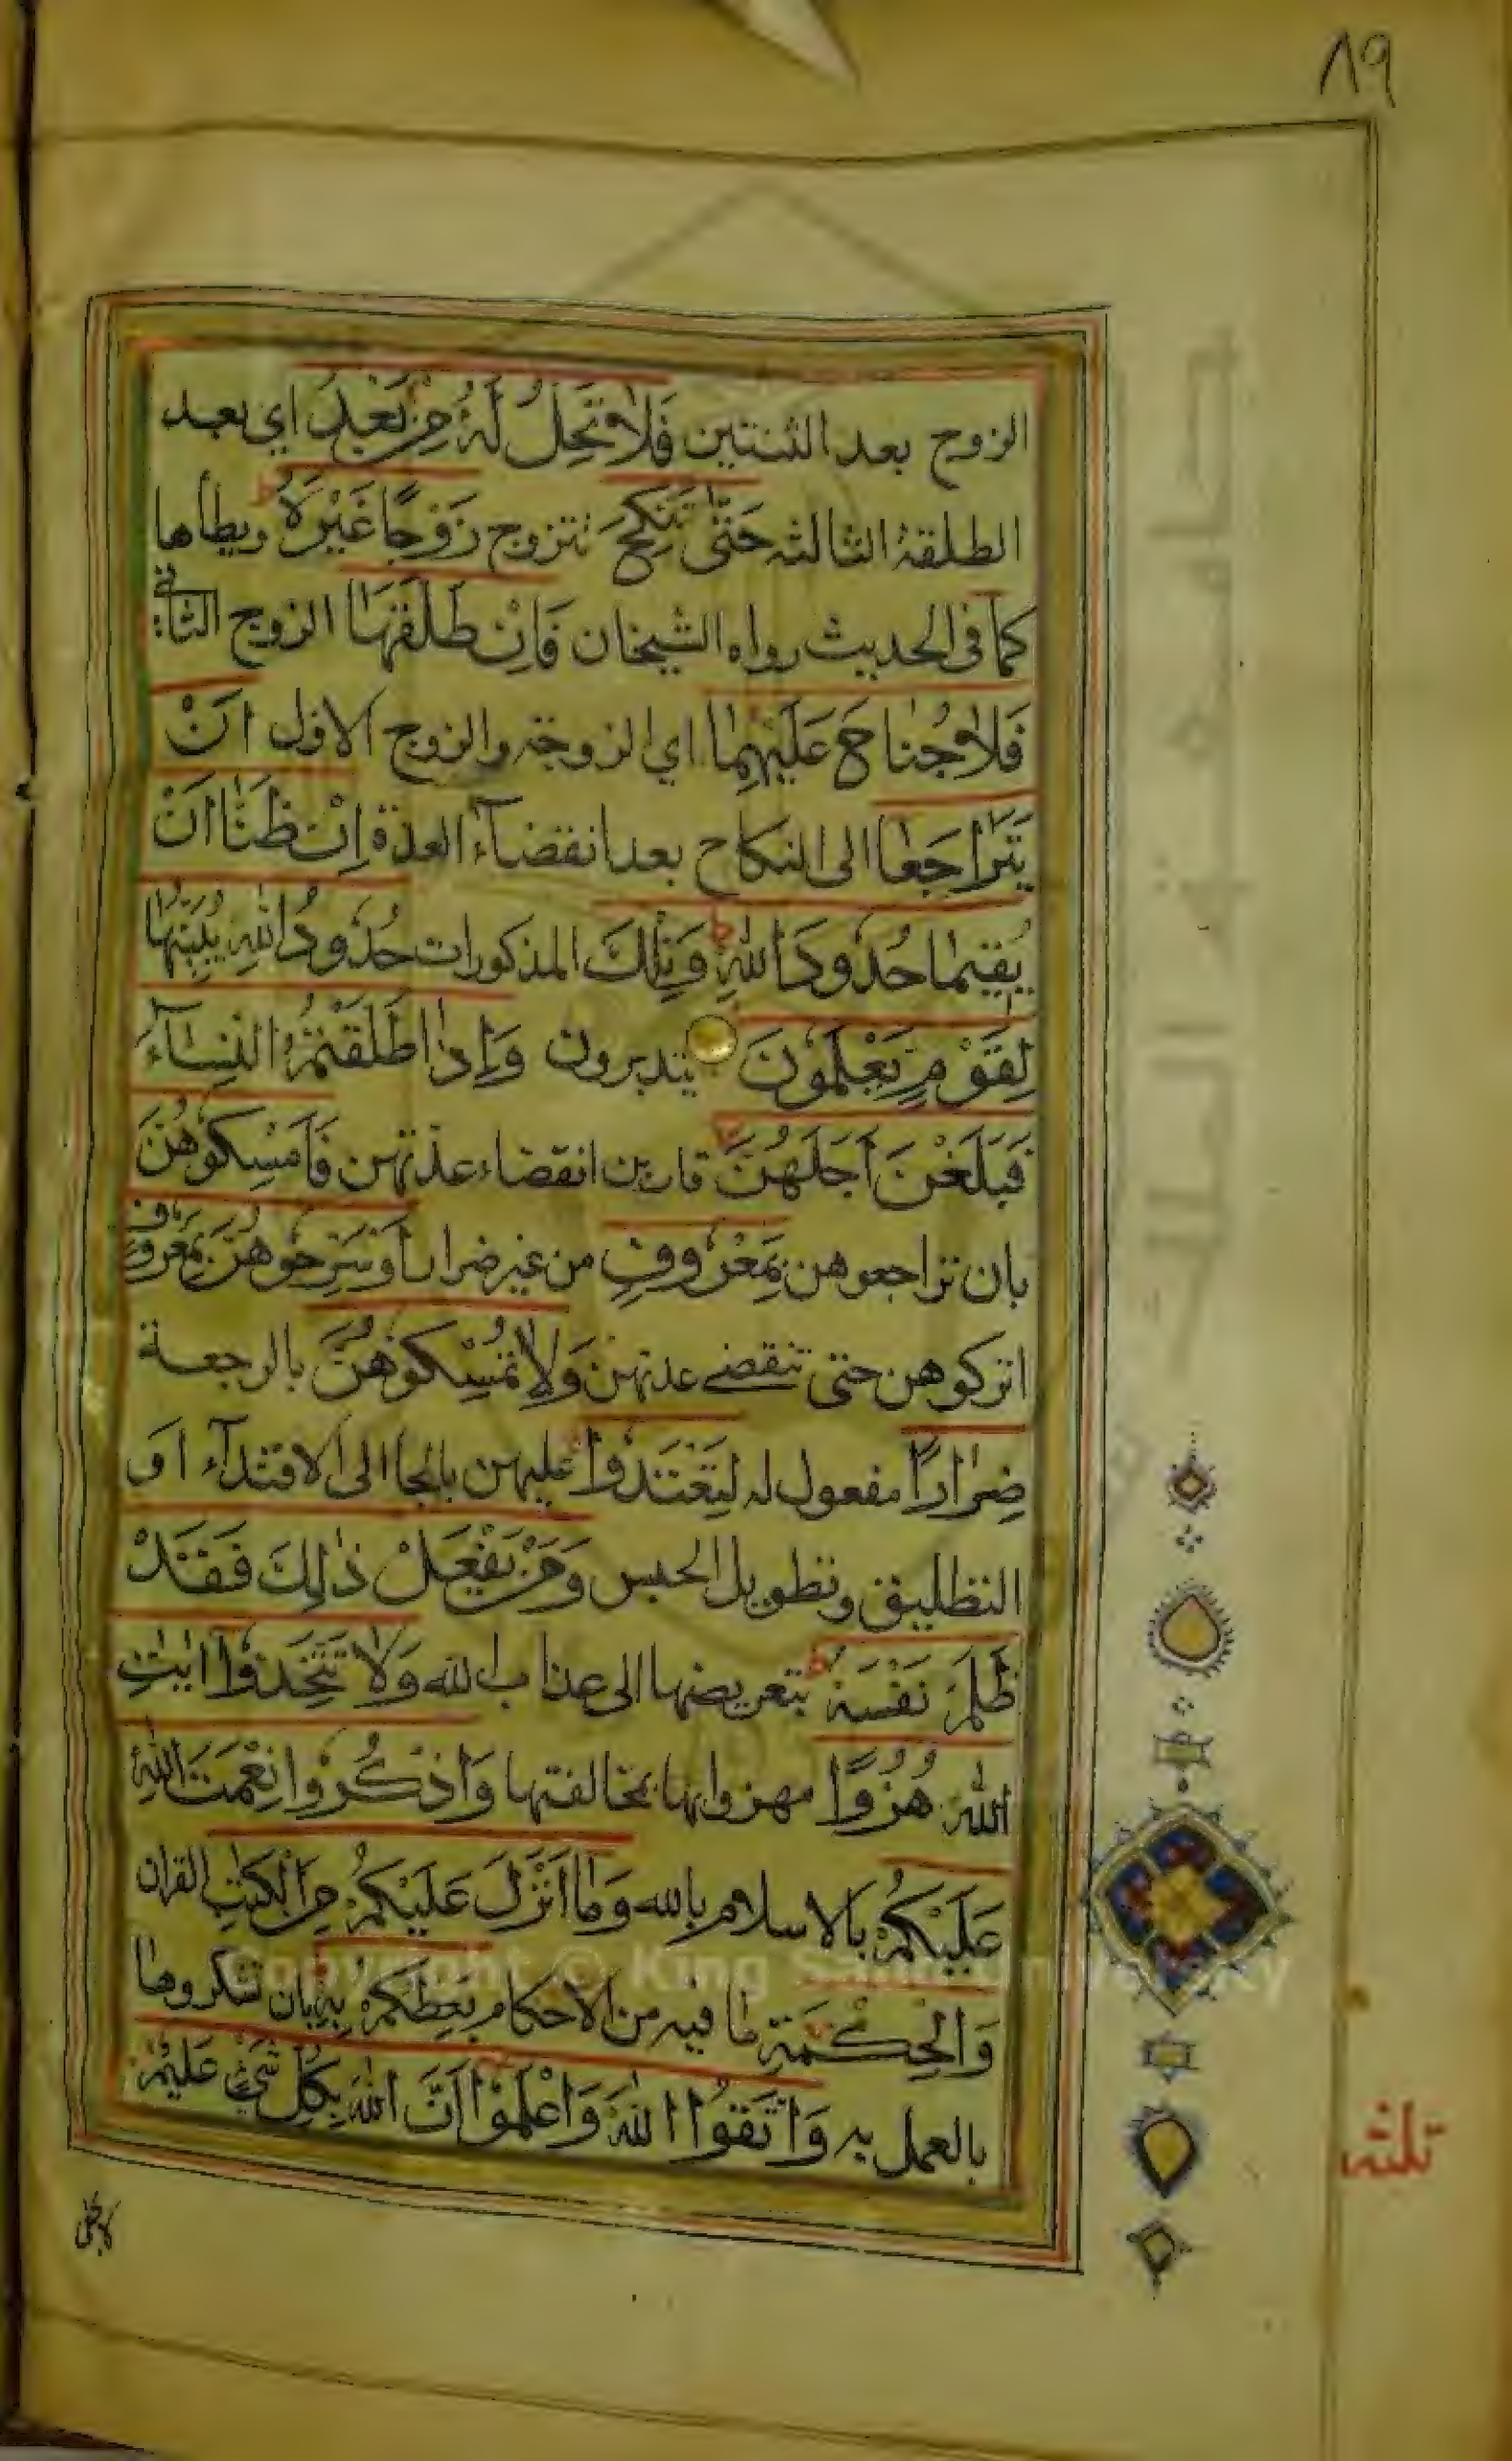 ٨٩
الزوج بعد الثنتين فَلَا تَحِلُّ لَهُ مِنْ بَعْدُ اي بعد
الطلقة الثالثه حَتّٰى تَنْكِحَ تتزوج زَوْجًا غَيْرَهُ ط ويطأها
كما فى الحديث رواه الشيخان فَاِنْ طَلَّقَهَا الزوج الثانى
فَلَا جُنَاحَ عَلَيْهِمَا اي الزوجة والزوج الاول اَنْ
يَتَرَاجَعَا الى النكاح بعد انقضآء العدة اِنْ ظَنَّا اَنْ
يُقِيمَا حُدُودَ اللّٰهِ ط وَتِلْكَ المذكورات حُدُودُ اللّٰهِ يُبَيِّنُهَا
لِقَوْمٍ يَعْلَمُونَ يتدبرون وَاِذَا طَلَّقْتُمُ النِّسَآءَ
فَبَلَغْنَ اَجَلَهُنَّ قاربن انقضاء عدتهن فَاَمْسِكُوهُنَّ
بان تراجعوهن بِمَعْرُوفٍ من غير ضرار اَوْ سَرِّحُوهُنَّ بِمَعْرُوفٍ
اتركوهن حتى تنقضے عدتهن وَلَا تُمْسِكُوهُنَّ بالرجعة
ضِرَارًا مفعول له لِتَعْتَدُوا عليهن بالجا الى الافتدآء او
التطليق وتطويل الحبس وَمَنْ يَفْعَلْ ذٰلِكَ فَقَدْ
ظَلَمَ نَفْسَهُ ط بتعريضها الى عذاب الله وَلَا تَتَّخِذُوا اٰيٰتِ
اللّٰهِ هُزُوًا مهزوا بها بمخالفتها وَاذْكُرُوا نِعْمَتَ اللّٰهِ
عَلَيْكُمْ بالاسلام بالله وَمَا اَنْزَلَ عَلَيْكُمْ مِنَ الْكِتٰبِ القران
وَالْحِكْمَةِ ما فيه من الاحكام يَعِظُكُمْ بِهِ بان تشكروها
بالعمل به وَاتَّقُوا اللّٰهَ وَاعْلَمُوا اَنَّ اللّٰهَ بِكُلِّ شَىْءٍ عَلِيمٌ
ثلثه
Copyright © King Saud University